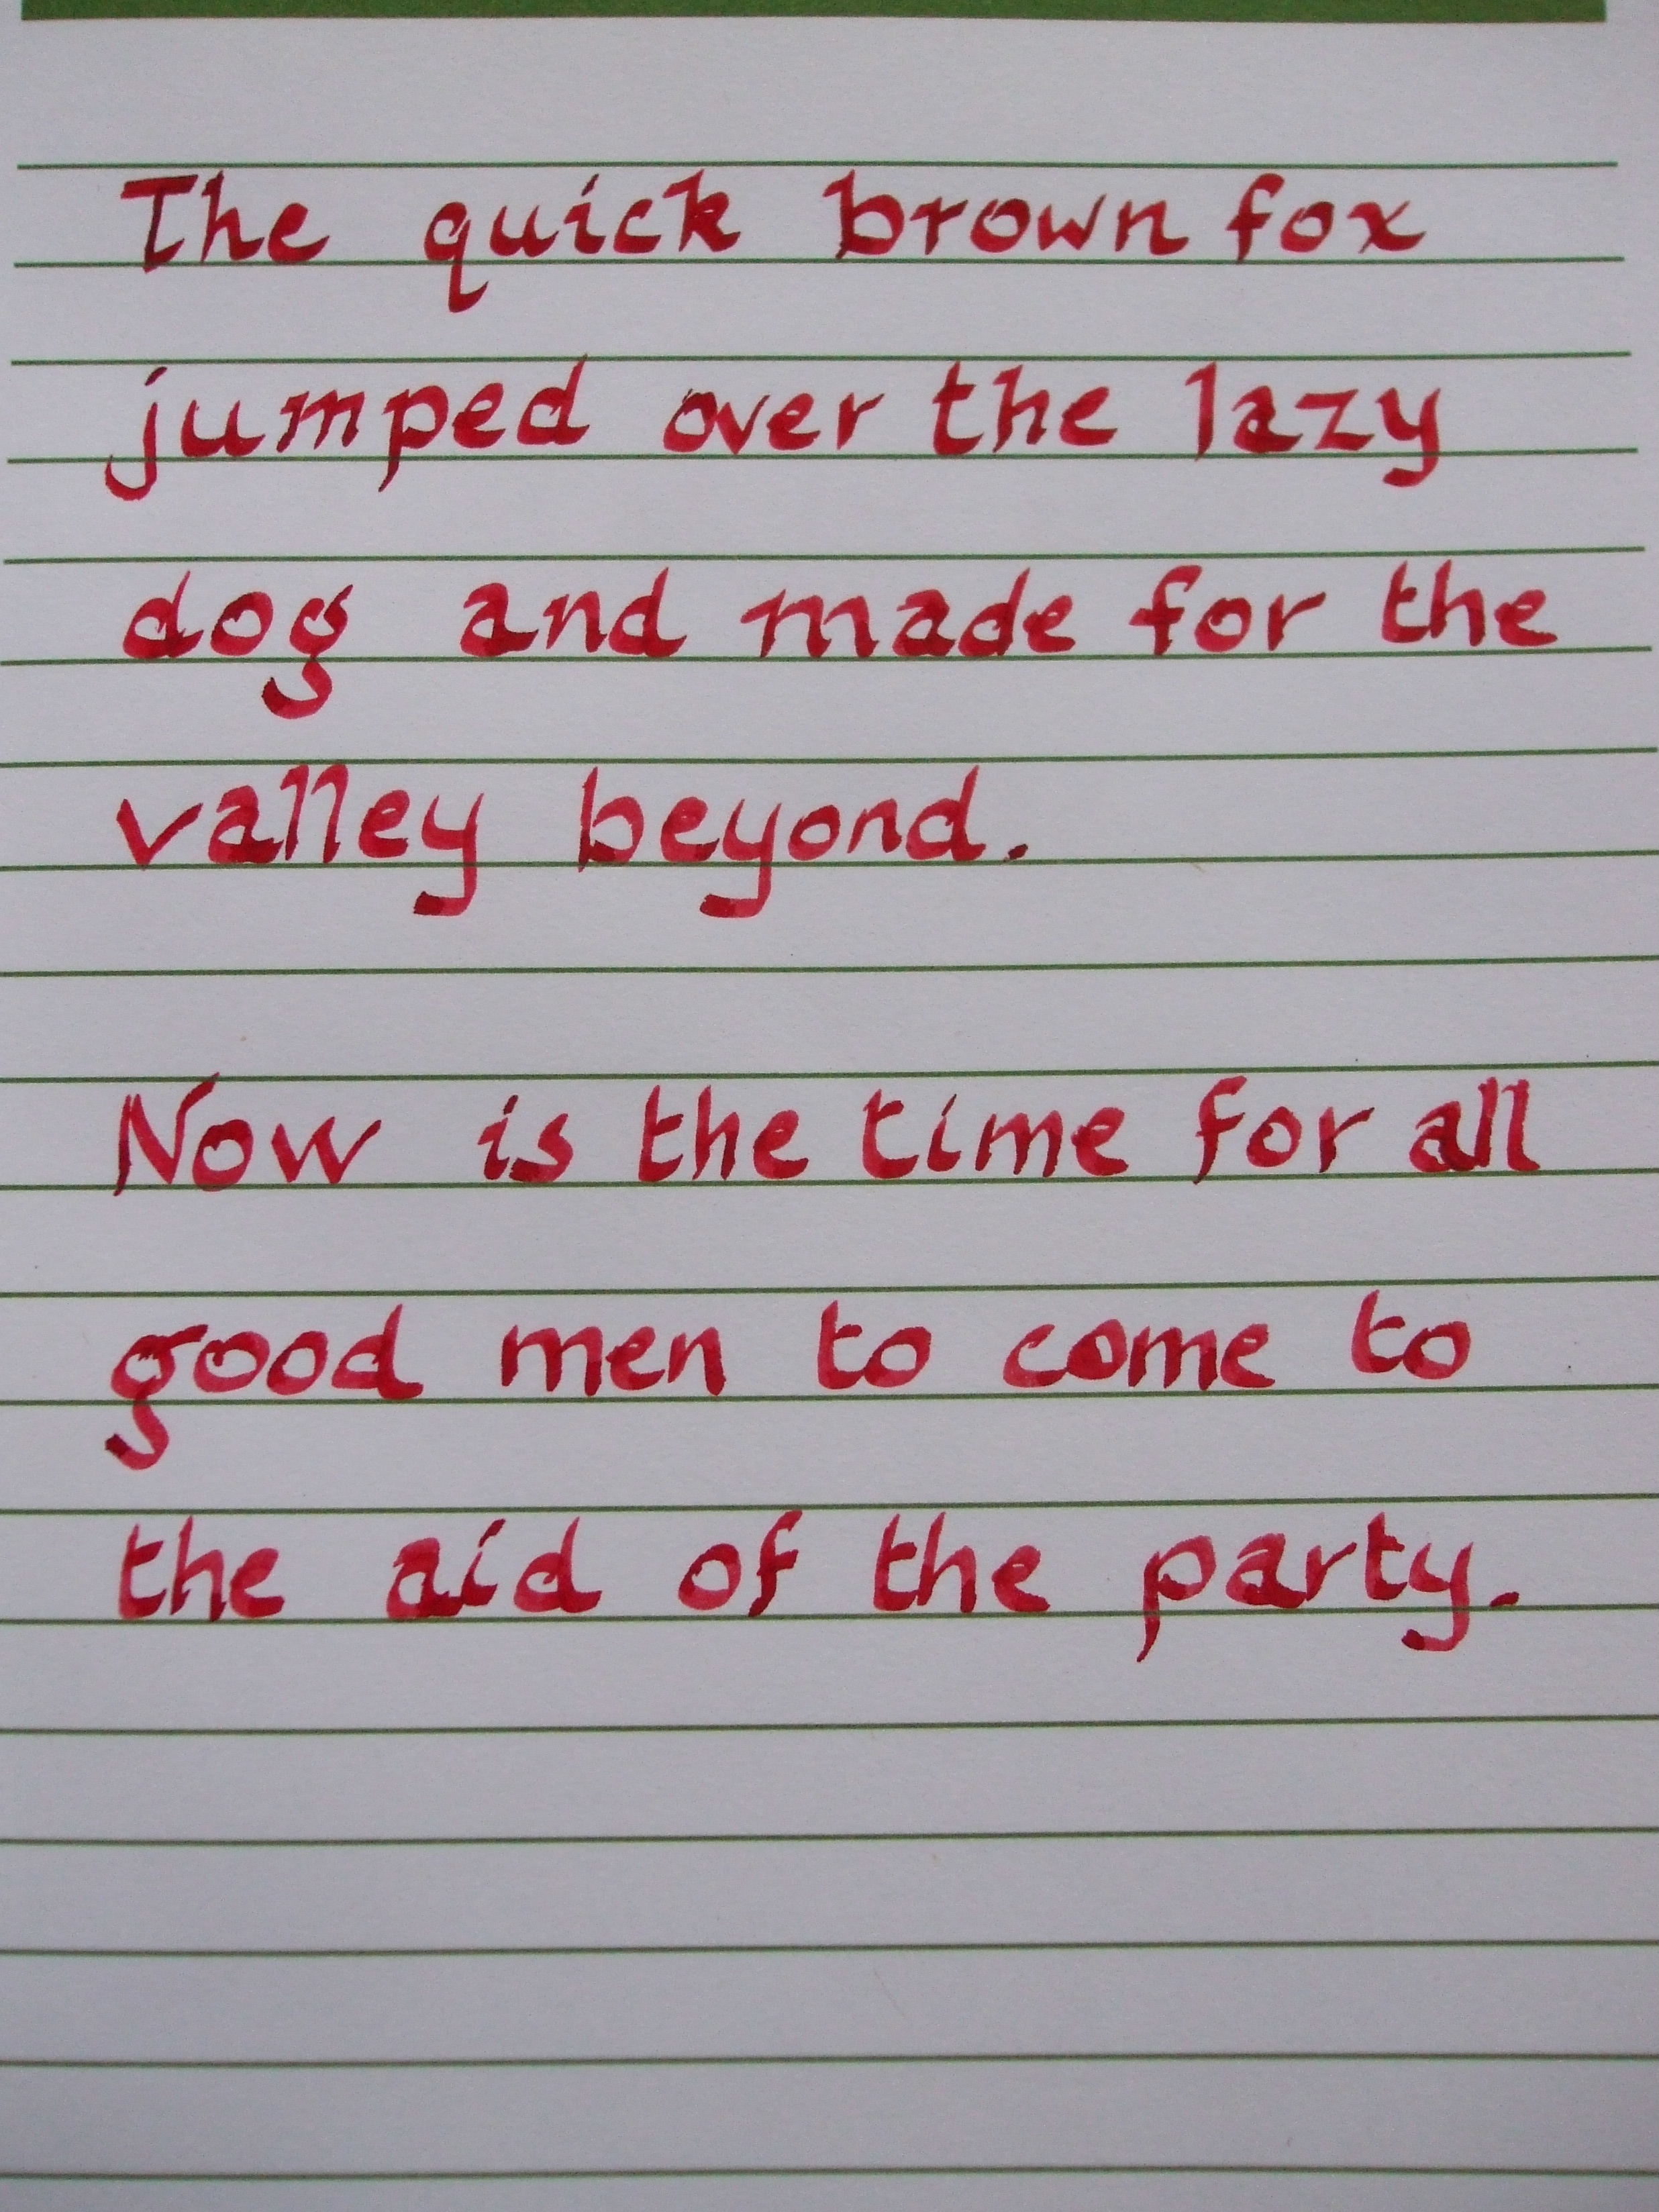 The quick brown fox
jumped over the lazy
dog and made for the
valley beyond.
Now is the time for all
good men to come to
the aid of the party.